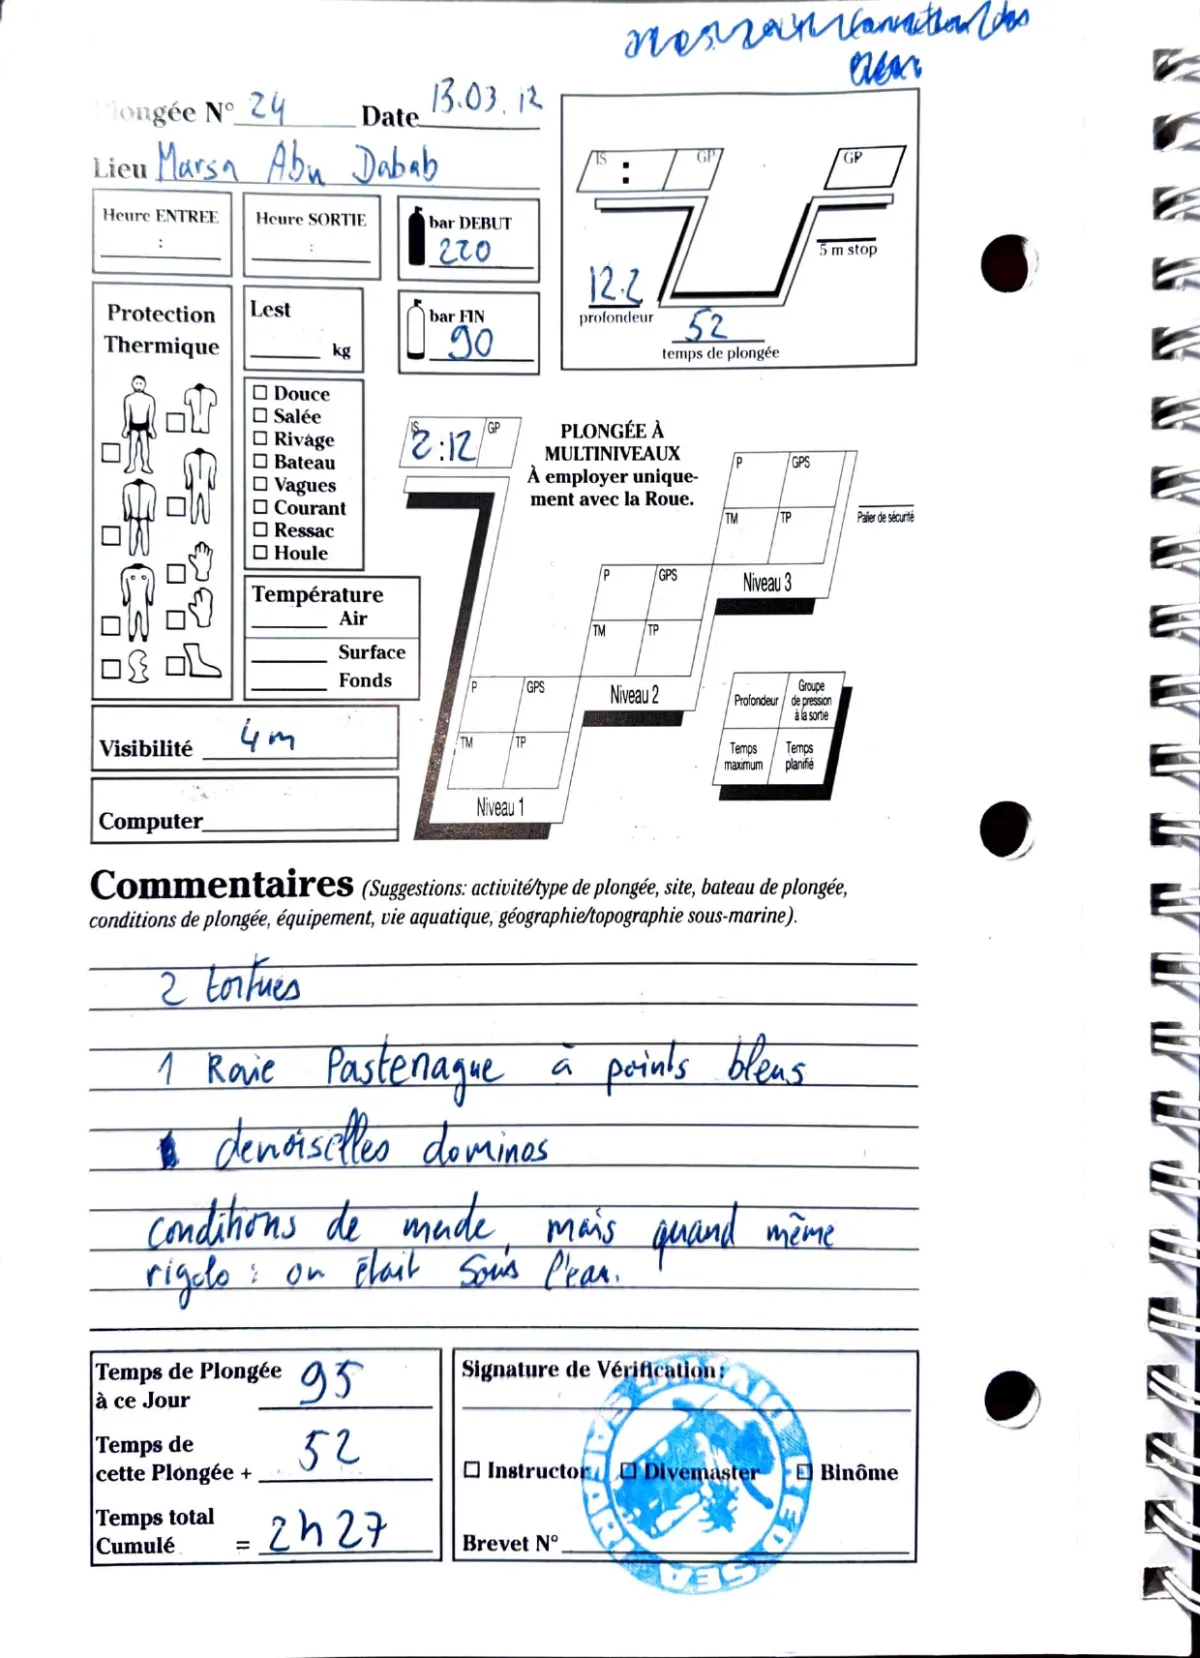 Plongée N° 24 Date 13.03.12
Lieu Marsa Abu Dabab
Heure ENTREE
:
Heure SORTIE
:
bar DEBUT
220
bar FIN
90
IS : GP
GP
5 m stop
12.2
profondeur
52
temps de plongée
Protection
Thermique
Lest
kg
Douce
Salée
Rivage
Bateau
Vagues
Courant
Ressac
Houle
Température
Air
Surface
Fonds
Visibilité 4 m
Computer
IS 2:12 GP
PLONGÉE À
MULTINIVEAUX
À employer unique-
ment avec la Roue.
P GPS
TM TP
Niveau 1
P GPS
TM TP
Niveau 2
P GPS
TM TP
Niveau 3
Palier de sécurité
Profondeur
Groupe
de pression
à la sortie
Temps
maximum
Temps
planifié
Commentaires (Suggestions: activité/type de plongée, site, bateau de plongée,
conditions de plongée, équipement, vie aquatique, géographie/topographie sous-marine).
2 tortues
1 Raie Pastenague à points bleus
demoiselles dominos
conditions de merde, mais quand même
rigolo : on était sous l'eau.
Temps de Plongée
à ce Jour 95
Temps de
cette Plongée + 52
Temps total
Cumulé = 2h27
Signature de Vérification:
Instructor Divemaster Binôme
Brevet N°
RED SEA
DIVING SAFARI